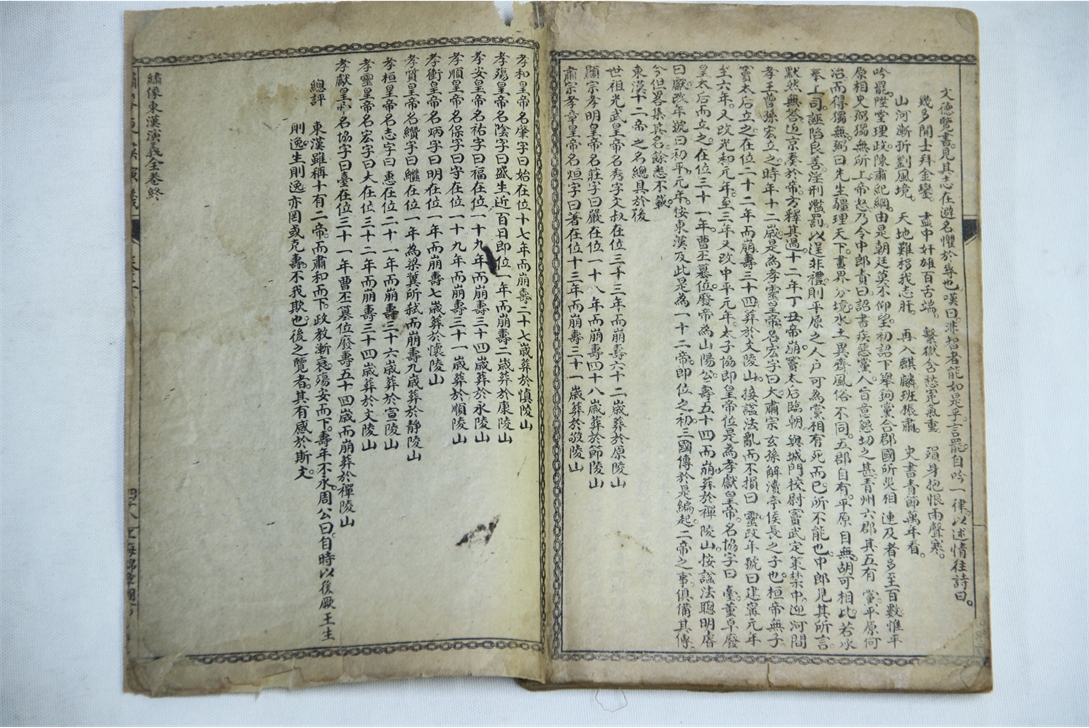 文德覽書見其志在避名懼於辱也嘆曰非智者能如是乎言罷自吟一律以述情往詩曰。
幾多開士拜金鑾 盡中奸雄百舌端 繫獄含愁冤氣重 殞身抱恨雨聲寒。
山河漸折劉風境。 天地難移我志肝。 再入麒麟班振肅。 史書青節萬年看。
吟罷陞堂理政陳肅紀綱由是朝廷莫不仰望初詔下舉鉤黨合郡國所災相連及者多至百數惟平
原相史弼獨無所上帝怒乃令中郎責曰詔書疾惡黨人旨意懇切之甚青州六郡其五有黨平原何
治而得獨無弼曰先王疆理天下畫界分境水土異齊風俗不同五郡自有平原自無胡可相比若承
奉上司誣陷良善淫刑濫罰以逞非禮則平原之人戶可為黨相有死而已所不能也中郎見其所言
默然無答返京奏於帝方釋其過十二年丁丑帝崩竇太后臨朝與城門校尉竇武定策禁中迎河間
孝王曾孫宏立之時年十二歲是為孝靈皇帝名宏字曰大肅宗玄孫解瀆亭侯長之子也桓帝無子
竇太后立之在位二十二年而崩壽三十四葬於文陵山按謚法亂而不損曰靈改年號曰建寧元年
至六年又改光和元年至三年又改中平元年太子協即皇帝位是為孝獻皇帝名協字曰臺董卓廢
皇太后而立之在位三十一年曹丕篡位廢帝為山陽公壽五十四而崩葬於禪陵山按謚法聰明睿
曰獻改年號曰初平元年按東漢及此是為一十二帝即位之初三國傳於是編起二帝之事俱備其傳
今但畧集其名餘悉不載
東漢十二帝之名總具於後
世祖光武皇帝名秀字文叔在位三十三年而崩壽六十二歲葬於原陵山
顯宗孝明皇帝名莊字曰嚴在位一十八年而崩壽四十八歲葬於節陵山
肅宗孝章皇帝名炟字曰著在位十三年而崩壽三十一歲葬於敬陵山
孝和皇帝名肇字曰始在位十七年而崩壽二十七歲葬於慎陵山
孝殤皇帝名隆字曰盛生近百日即位一年而崩壽二歲葬於康陵山
孝安皇帝名祐字曰福在位一十九年而崩壽三十四歲葬於永陵山
孝順皇帝名保字曰守在位一十九年而崩壽三十一歲葬於順陵山
孝衝皇帝名炳字曰明在位一年而崩壽七歲葬於懷陵山
孝質皇帝名纘字曰繼在位一年為梁冀所弒而崩壽九歲葬於靜陵山
孝桓皇帝名志字曰惠在位二十一年而崩壽三十六歲葬於宣陵山
孝靈皇帝名宏字曰大在位三十二年而崩壽三十四歲葬於文陵山
孝獻皇帝名協字曰臺在位三十一年曹丕篡位廢壽五十四歲而崩葬於禪陵山
總評 東漢雖稱十有二帝而肅和而下政教漸衰殤安而下壽年不永周公曰自時以後厥王生
則逸生則逸亦罔或克壽不我欺也後之覽者其有感於斯文
繡像東漢演義全卷終